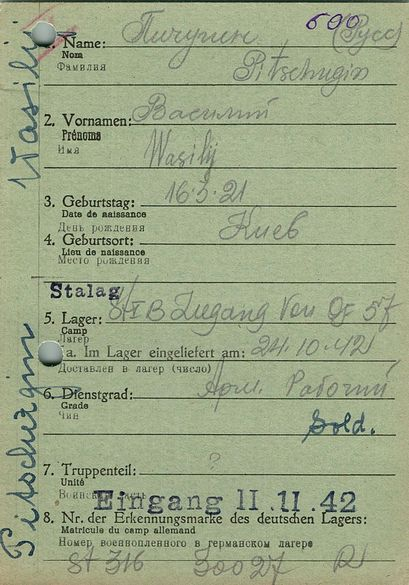 600
1. Name: Пичугин (Русс)
Nom
Фамилия Pitschugin
2. Vornamen: Василий
Prénoms
Имя Wasilij
3. Geburtstag: 16.3.21
Date de naissance
День рождения
4. Geburtsort: Киев
Lieu de naissance
Место рождения
Stalag
5. Lager: St I B Zugang Von Of 57
Camp
Лагерь
5a. Im Lager eingeliefert am: 24.10.42
Доставлен в лагерь (число)
6. Dienstgrad: Арм. Рабочий
Grade
Чин Sold.
7. Truppenteil: ?
Unité
Воинская часть
Eingang 11.11.42
8. Nr. der Erkennungsmarke des deutschen Lagers:
Matricule du camp allemand
Номер военнопленного в германском лагере
St 316 30027
Pitschugin Wasilij